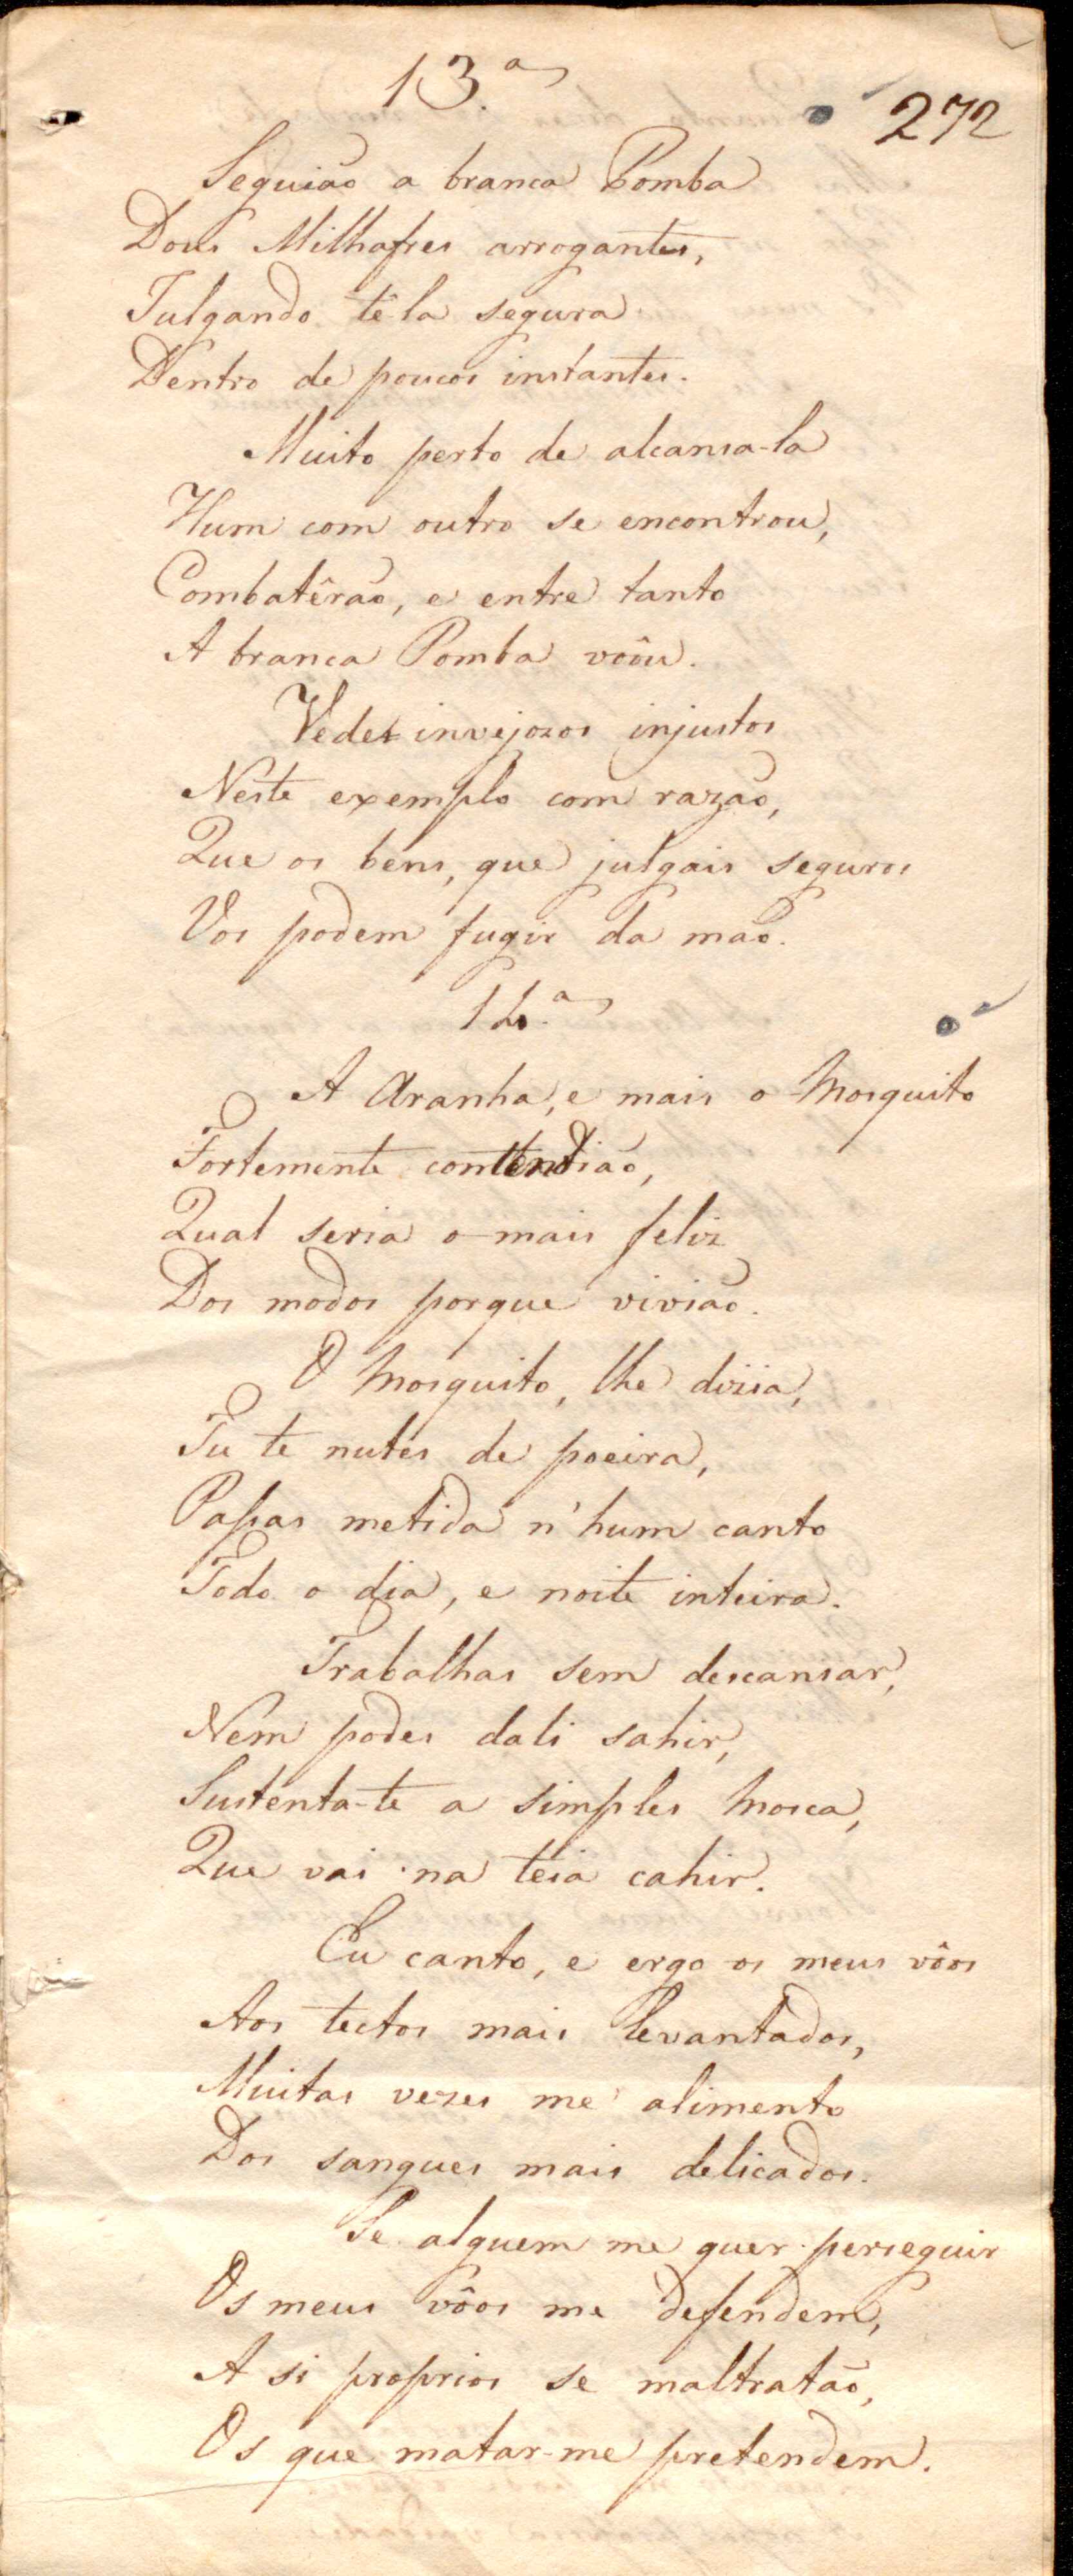 13.ª
272
Seguião a branca Pomba
Dous Milhafres arrogantes,
Julgando tê-la segura
Dentro de poucos instantes.
Muito perto de alcansa-la
Hum com outro se encontrou,
Combatêrão, e entre tanto
A branca Pomba vôou.
Vedes invejozos injustos
Neste exemplo com razão,
Que os bens, que julgais seguros
Vos podem fugir da mão.
14.ª
A Aranha, e mais o Mosquito
Fortemente contendião,
Qual seria o mais feliz
Dos modos porque vivião.
O Mosquito, lhe dizia,
Tu te nutes de poeira,
Passas metida n'hum canto
Todo o dia, e noite inteira.
Trabalhas sem descansar,
Nem podes dali sahir,
Sustenta-te a simples Mosca,
Que vai na teia cahir.
Eu canto, e ergo os meus vôos
Aos tectos mais levantados,
Muitas vezes me alimento
Dos sangues mais delicados.
Se alguem me quer perseguir
Os meus vôos me defendem,
A si proprios se maltratão,
Os que matar-me pretendem.